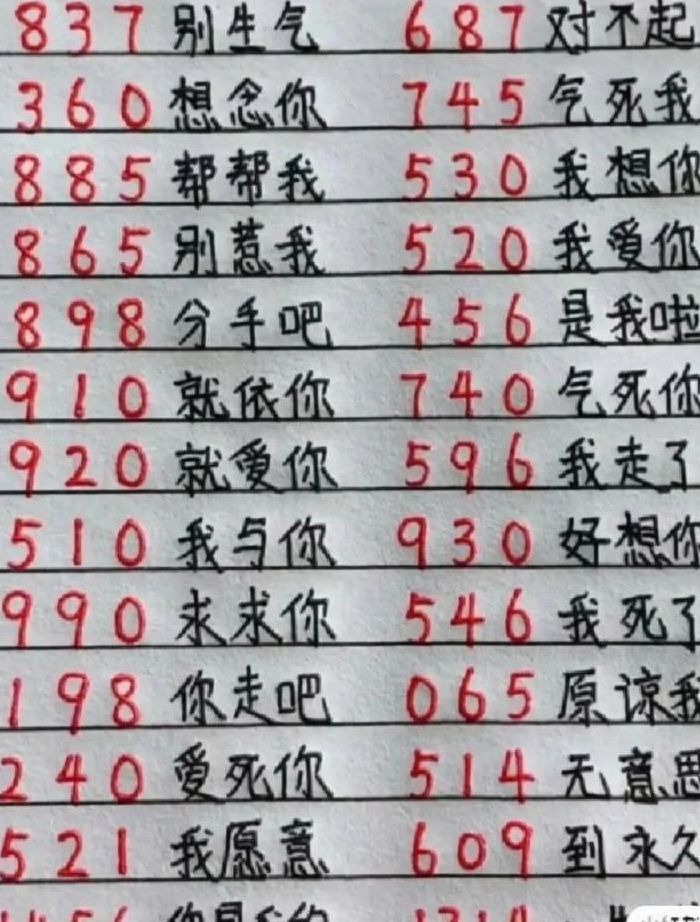 837 别生气 687 对不起
360 想念你 745 气死我
885 帮帮我 530 我想你
865 别惹我 520 我爱你
898 分手吧 456 是我啦
910 就依你 740 气死你
920 就爱你 596 我走了
510 我与你 930 好想你
990 求求你 546 我死了
198 你走吧 065 原谅我
240 爱死你 514 无意思
521 我愿意 609 到永久